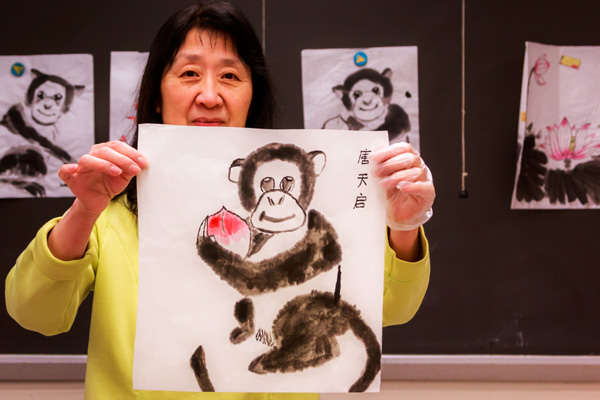 唐天启